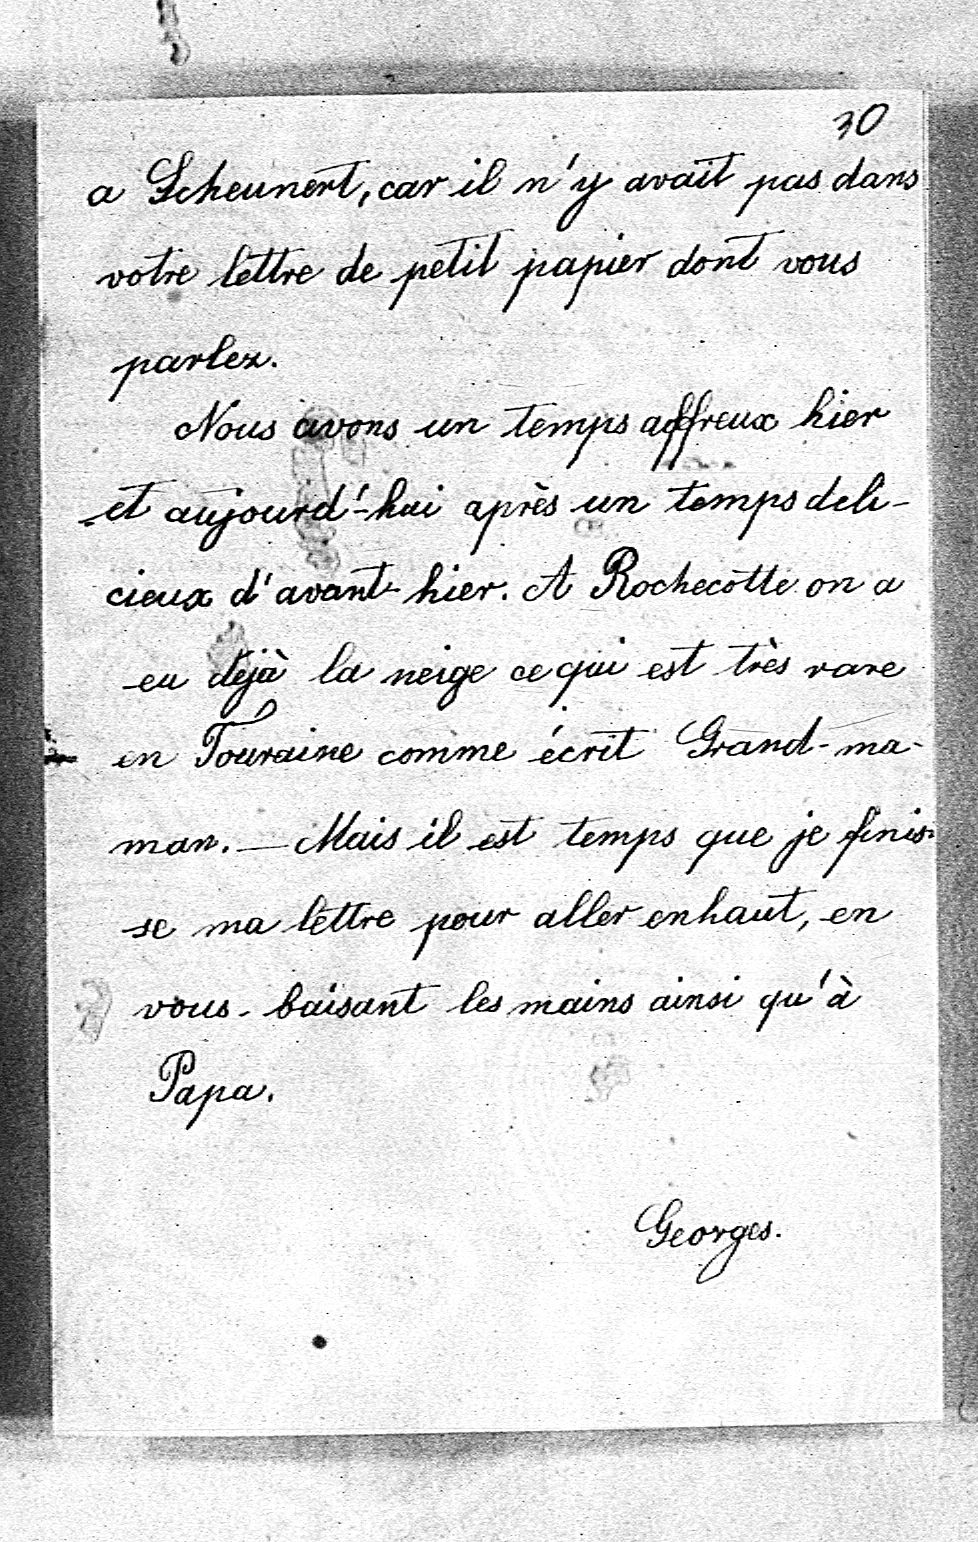 30
a Scheunert, car il n'y avait pas dans
votre lettre de petit papier dont vous
parlez.
Nous avons un temps affreux hier
et aujourd'-hui après un temps deli-
cieux d'avant-hier. A Rochecotte on a
eu déjà la neige ce qui est très rare
en Touraine comme écrit Grand-ma-
man. — Mais il est temps que je finis-
se ma lettre pour aller enhaut, en
vous baisant les mains ainsi qu'à
Papa.
Georges.